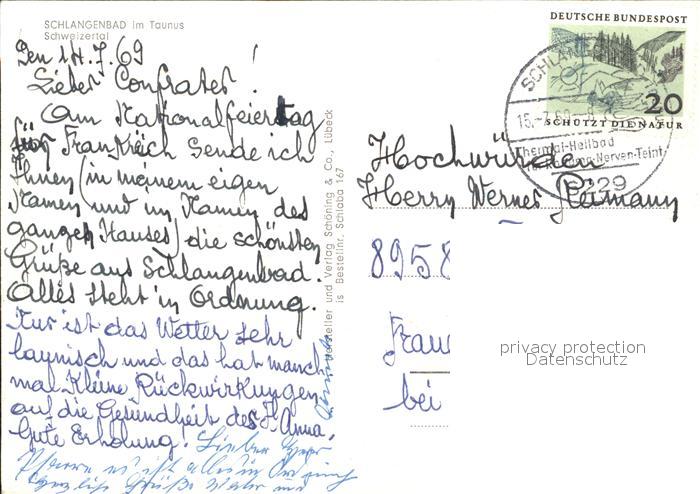 SCHLANGENBAD im Taunus
Schweizertal
Den 14.7.69
Lieber Confrater!
Am Nationalfeiertag
für Frankreich sende ich
Ihnen (in meinem eigen
Namen und im Namen des
ganzen Hauses) die schönsten
Grüße aus Schlangenbad.
Alles steht in Ordnung.
Nur ist das Wetter sehr
launisch und das hat manch
mal kleine Rückwirkungen
auf die Gesundheit des
Gute Erholung!
Lieber Herr
Pfarrer es ist alles in Ordnung
Herzliche Grüße
Hersteller und Verlag Schöning & Co., Lübeck
is Bestellnr. Schlaba 167
DEUTSCHE BUNDESPOST
20
SCHÜTZT DIE NATUR
SCHLANGENBAD
15.-7.69
Thermal-Heilbad
Nerven-Teint
6229
Hochwürden
Herrn Werner
8958
bei
privacy protection
Datenschutz